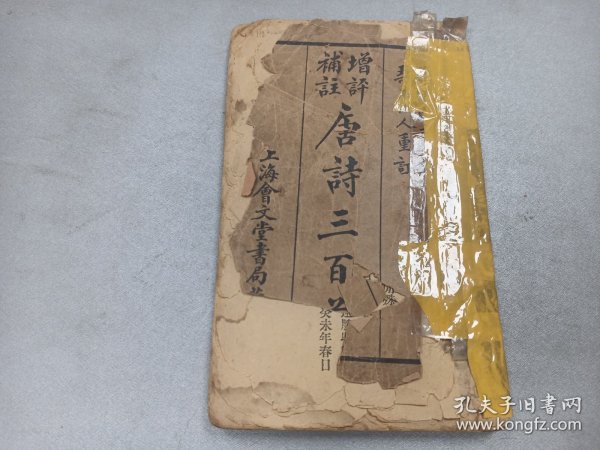 人重訂
增評
補註
唐詩三百
上海會文堂書局
癸未年春日
孔夫子旧书网
www.kongfz.com